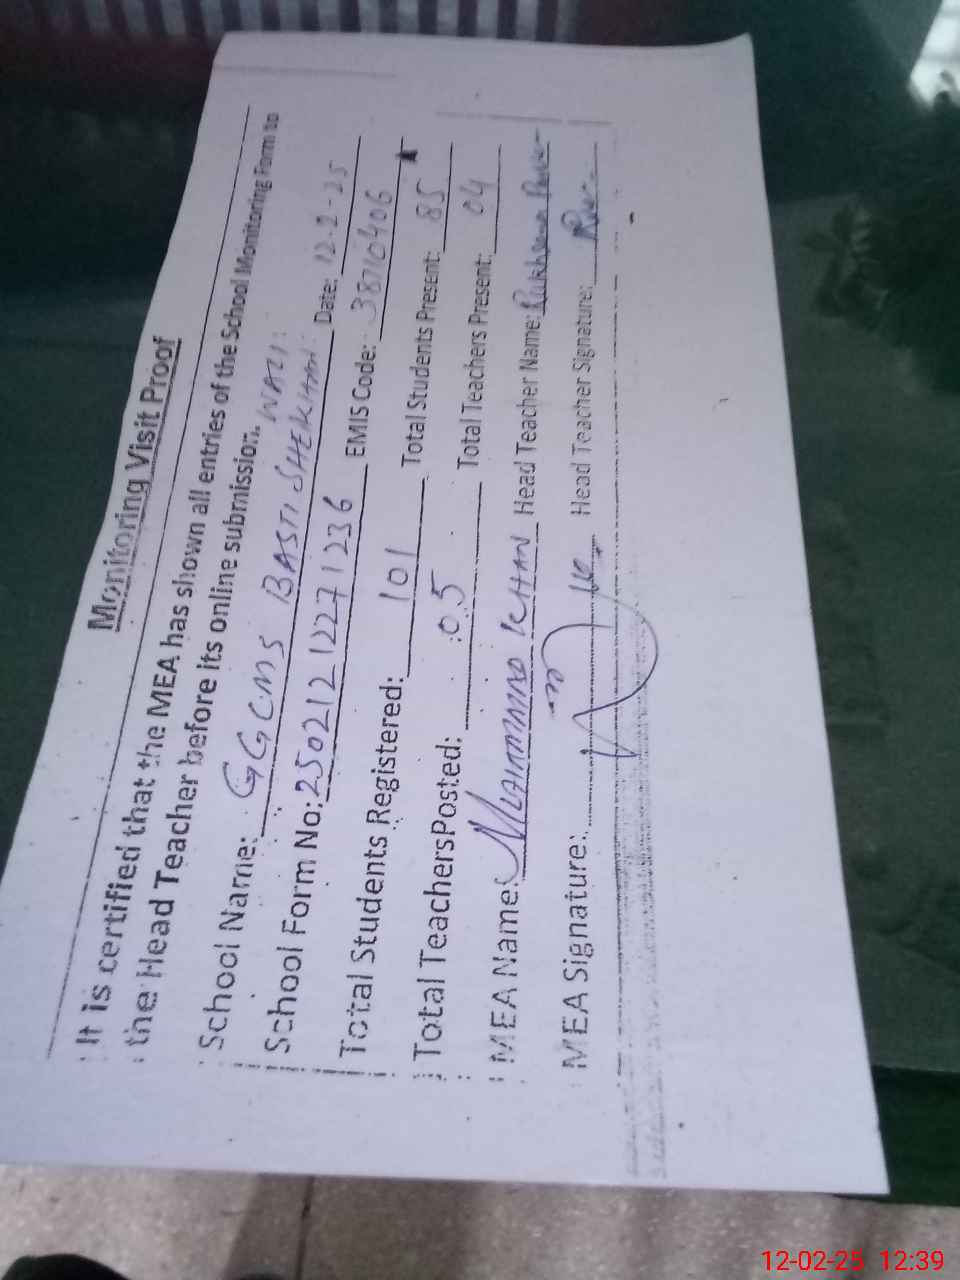 Monitoring Visit Proof
It is certified that the MEA has shown all entries of the School Monitoring Form to
the Head Teacher before its online submission.
School Name: GGCMS BASTI SHEIKHAN WALI
School Form No: 250212122271236 Date: 12-2-25
Total Students Registered: 101 EMIS Code: 38110406
Total Teachers Posted: 05 Total Students Present: 85
Total Teachers Present: 04
MEA Name: MUHAMMAD KHAN Head Teacher Name: Rukhsana
MEA Signature: Head Teacher Signature:
12-02-25 12:39